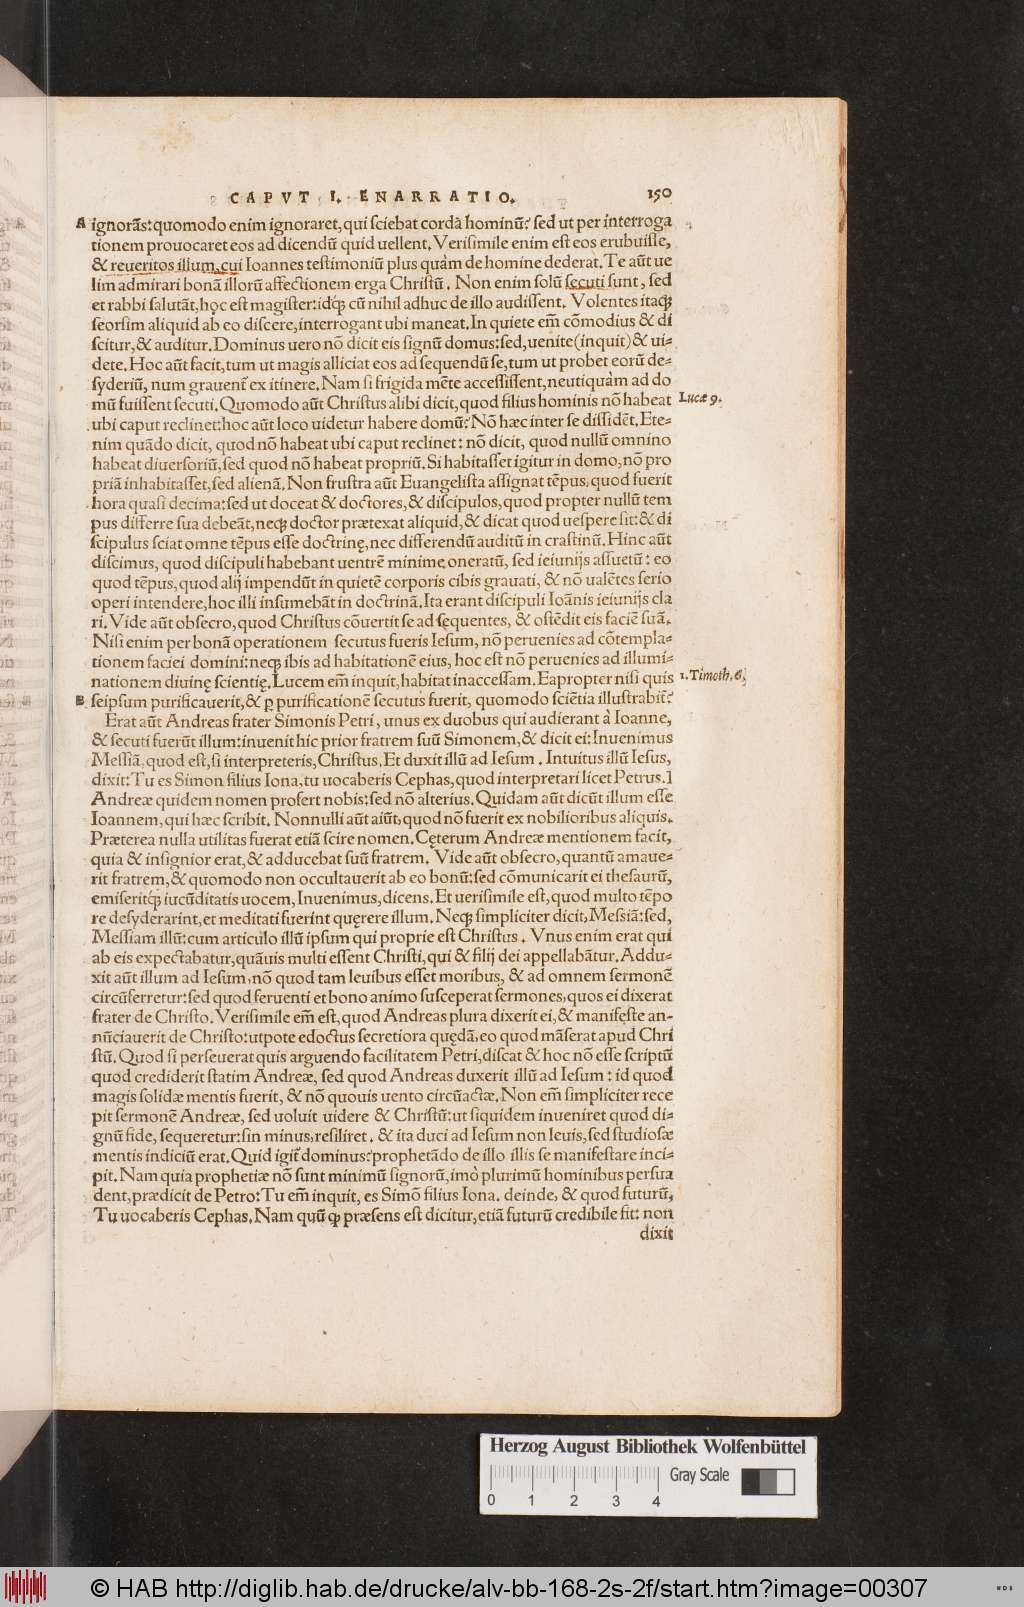 CAPVT I. ENARRATIO. 150
A ignorãs: quomodo enim ignoraret, qui sciebat corda hominũ? sed ut per interroga
tionem prouocaret eos ad dicendũ quid uellent. Verisimile enim est eos erubuisse,
& reueritos illum, cui Ioannes testimoniũ plus quàm de homine dederat. Te aũt ue
lim admirari bonã illorũ affectionem erga Christũ. Non enim solũ secuti sunt, sed
et rabbi salutãt, hoc est magister: idq́; cũ nihil adhuc de illo audissent. Volentes itaq́;
seorsim aliquid ab eo discere, interrogant ubi maneat. In quiete em̃ cõmodius & di
scitur, & auditur. Dominus uero nõ dicit eis signũ domus: sed, uenite (inquit) & ui-
dete. Hoc aũt facit, tum ut magis alliciat eos ad sequendũ se, tum ut probet eorũ de-
syderiũ, num grauent̃ ex itinere. Nam si frigida mẽte accessissent, neutiquàm ad do
mũ fuissent secuti. Quomodo aũt Christus alibi dicit, quod filius hominis nõ habeat
Lucæ 9.
ubi caput reclinet: hoc aũt loco uidetur habere domũ? Nõ hæc inter se dissidẽt. Ete-
nim quãdo dicit, quod nõ habeat ubi caput reclinet: nõ dicit, quod nullũ omnino
habeat diuersoriũ, sed quod nõ habeat propriũ. Si habitasset igitur in domo, nõ pro
priã inhabitasset, sed alienã. Non frustra aũt Euangelista assignat tẽpus, quod fuerit
hora quasi decima: sed ut doceat & doctores, & discipulos, quod propter nullũ tem
pus differre sua debeãt, neq́; doctor prætexat aliquid, & dicat quod uespere sit: & di
scipulus sciat omne tẽpus esse doctrinę, nec differendũ auditũ in crastinũ. Hinc aũt
discimus, quod discipuli habebant uentrẽ minime oneratũ, sed ieiunijs assuetũ: eo
quod tẽpus, quod alij impendũt in quietẽ corporis cibis grauati, & nõ ualẽtes serio
operi intendere, hoc illi insumebãt in doctrinã. Ita erant discipuli Ioãnis ieiunijs cla
ri. Vide aũt obsecro, quod Christus cõuertit se ad sęquentes, & ostẽdit eis faciẽ suã.
Nisi enim per bonã operationem secutus fueris Iesum, nõ peruenies ad cõtempla-
tionem faciei domini: neq́; ibis ad habitationẽ eius, hoc est nõ peruenies ad illumi-
nationem diuinę scientię. Lucem em̃ inquit, habitat inaccessam. Eapropter nisi quis
1. Timoth. 6.
B seipsum purificauerit, & ꝑ purificationẽ secutus fuerit, quomodo sciẽtia illustrabit̃?
Erat aũt Andreas frater Simonis Petri, unus ex duobus qui audierant à Ioanne,
& secuti fuerũt illum: inuenit hic prior fratrem suũ Simonem, & dicit ei: Inuenimus
Messiã, quod est, si interpreteris, Christus. Et duxit illũ ad Iesum. Intuitus illũ Iesus,
dixit: Tu es Simon filius Iona, tu uocaberis Cephas, quod interpretari licet Petrus.]
Andreæ quidem nomen profert nobis: sed nõ alterius. Quidam aũt dicũt illum esse
Ioannem, qui hæc scribit. Nonnulli aũt aiũt, quod nõ fuerit ex nobilioribus aliquis.
Præterea nulla utilitas fuerat etiã scire nomen. Cęterum Andreæ mentionem facit,
quia & insignior erat, & adducebat suũ fratrem. Vide aũt obsecro, quantũ amaue-
rit fratrem, & quomodo non occultauerit ab eo bonũ: sed cõmunicarit ei thesaurũ,
emiseritq́; iucũditatis uocem, Inuenimus, dicens. Et uerisimile est, quod multo tẽpo
re desyderarint, et meditati fuerint quęrere illum. Neq́; simpliciter dicit, Messiã: sed,
Messiam illũ: cum articulo illũ ipsum qui proprie est Christus. Vnus enim erat qui
ab eis expectabatur, quãuis multi essent Christi, qui & filij dei appellabãtur. Addu-
xit aũt illum ad Iesum, nõ quod tam leuibus esset moribus, & ad omnem sermonẽ
circũferretur: sed quod feruenti et bono animo susceperat sermones, quos ei dixerat
frater de Christo. Verisimile em̃ est, quod Andreas plura dixerit ei, & manifęste an-
nũciauerit de Christo: utpote edoctus secretiora quędã, eo quod mãserat apud Chri
stũ. Quod si perseuerat quis arguendo facilitatem Petri, discat & hoc nõ esse scriptũ
quod crediderit statim Andreæ, sed quod Andreas duxerit illũ ad Iesum: id quod
magis solidæ mentis fuerit, & nõ quouis uento circũactæ. Non em̃ simpliciter rece
pit sermonẽ Andreæ, sed uoluit uidere & Christũ: ut siquidem inueniret quod di-
gnũ fide, sequeretur: sin minus, resiliret. & ita duci ad Iesum non leuis, sed studiosæ
mentis indiciũ erat. Quid igit̃ dominus? prophetãdo de illo illis se manifestare inci-
pit. Nam quia prophetiæ nõ sunt minimũ signorũ, imò plurimũ hominibus persua
dent, prædicit de Petro: Tu em̃ inquit, es Simõ filius Iona. deinde, & quod futurũ,
Tu uocaberis Cephas. Nam quũ ꝙ præsens est dicitur, etiã futurũ credibile fit: non
dixit
Herzog August Bibliothek Wolfenbüttel
Gray Scale
0 1 2 3 4
© HAB http://diglib.hab.de/drucke/alv-bb-168-2s-2f/start.htm?image=00307